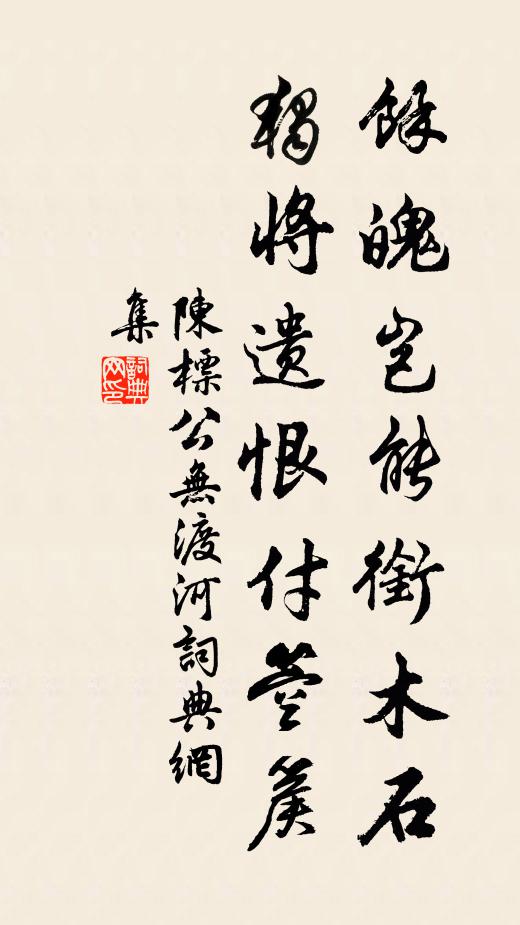 餘魄豈能銜木石
獨將遺恨付箜篌
陳標公無渡河詞典網
集
詞典
网印